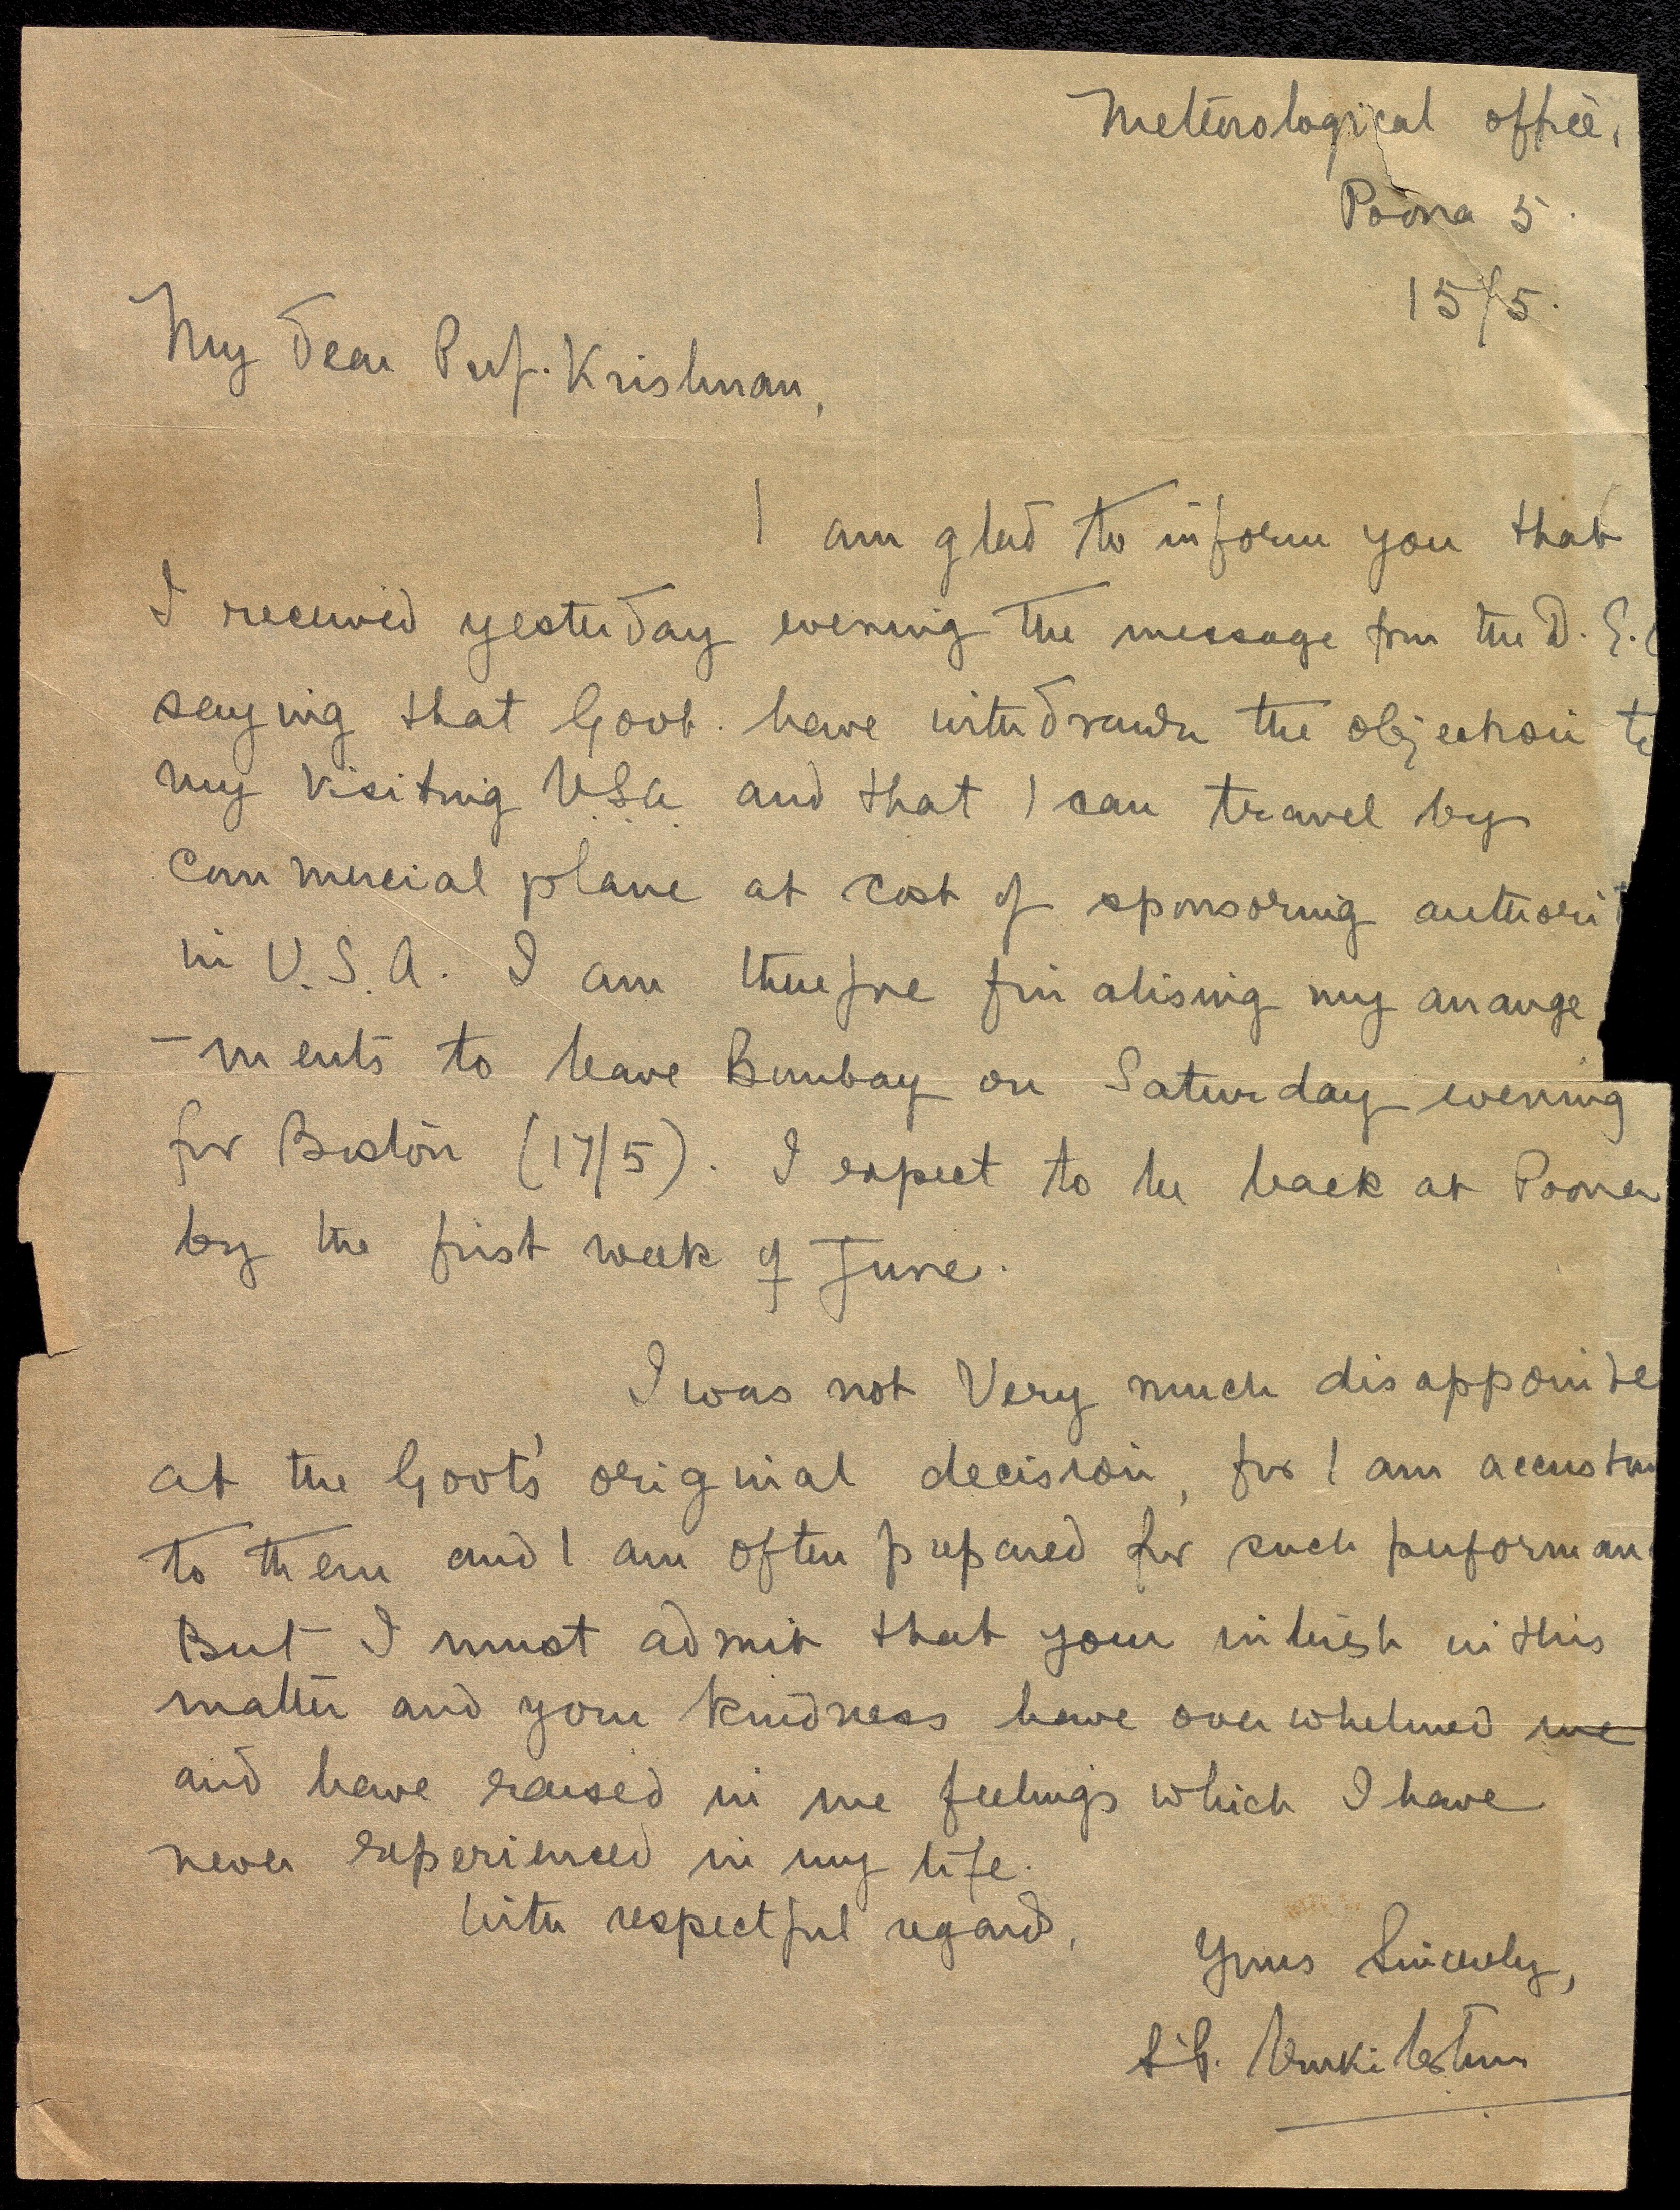 Meteorological office,
Poona 5.
15/5.
My dear Prof. Krishnan,
I am glad to inform you that
I received yesterday evening the message from the D. G.
saying that Govt. have withdrawn the objection to
my visiting U.S.A. and that I can travel by
commercial plane at cost of sponsoring authori
in U.S.A. I am therefore finalising my arange
-ments to leave Bombay on Saturday evening
for Boston (17/5). I expect to be back at Poona
by the first week of June.
I was not Very much disappointe
at the Govt's original decision, for I am accustom
to them and I am often prepared for such performan
But I must admit that your interest in this
matter and your kindness have overwhelmed me
and have raised in me feelings which I have
never experienced in my life.
With respectful regards,
Yours Sincerely,